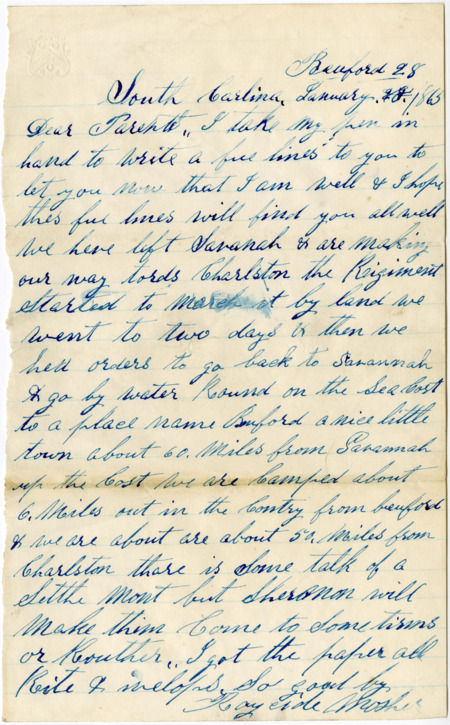 Beuford 28
South Carlina, January 28. 1865
Dear Parehts,, I take my pen in
hand to write a fue lines to you to
let you now that I am well & I hope
thes fue lines will find you all well
We heve left Savanah & are making
our way tords Charlston the Reigiment
Started to march it by land we
went to two days & then we
hed orders to go back to Savannah
& go by water Round on the Sea Cost
to a place name Buford a nice little
town about 60. Miles from Savannah
up the Cost we are Camped about
6. Miles out in the Contry from beuford
& we are about are about 50. Miles from
Charlston thare is some talk of a
Settle Mont but Shermon will
Make thim Come to Some tirms
or Routher,, I got the paper all
Rite & invelops. So good by